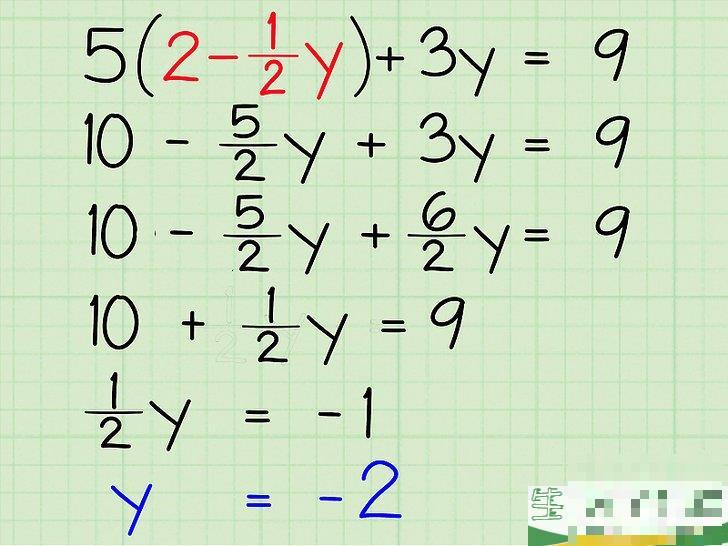 5(2 - 1/2 y) + 3y = 9
10 - 5/2 y + 3y = 9
10 - 5/2 y + 6/2 y = 9
10 + 1/2 y = 9
1/2 y = -1
y = -2